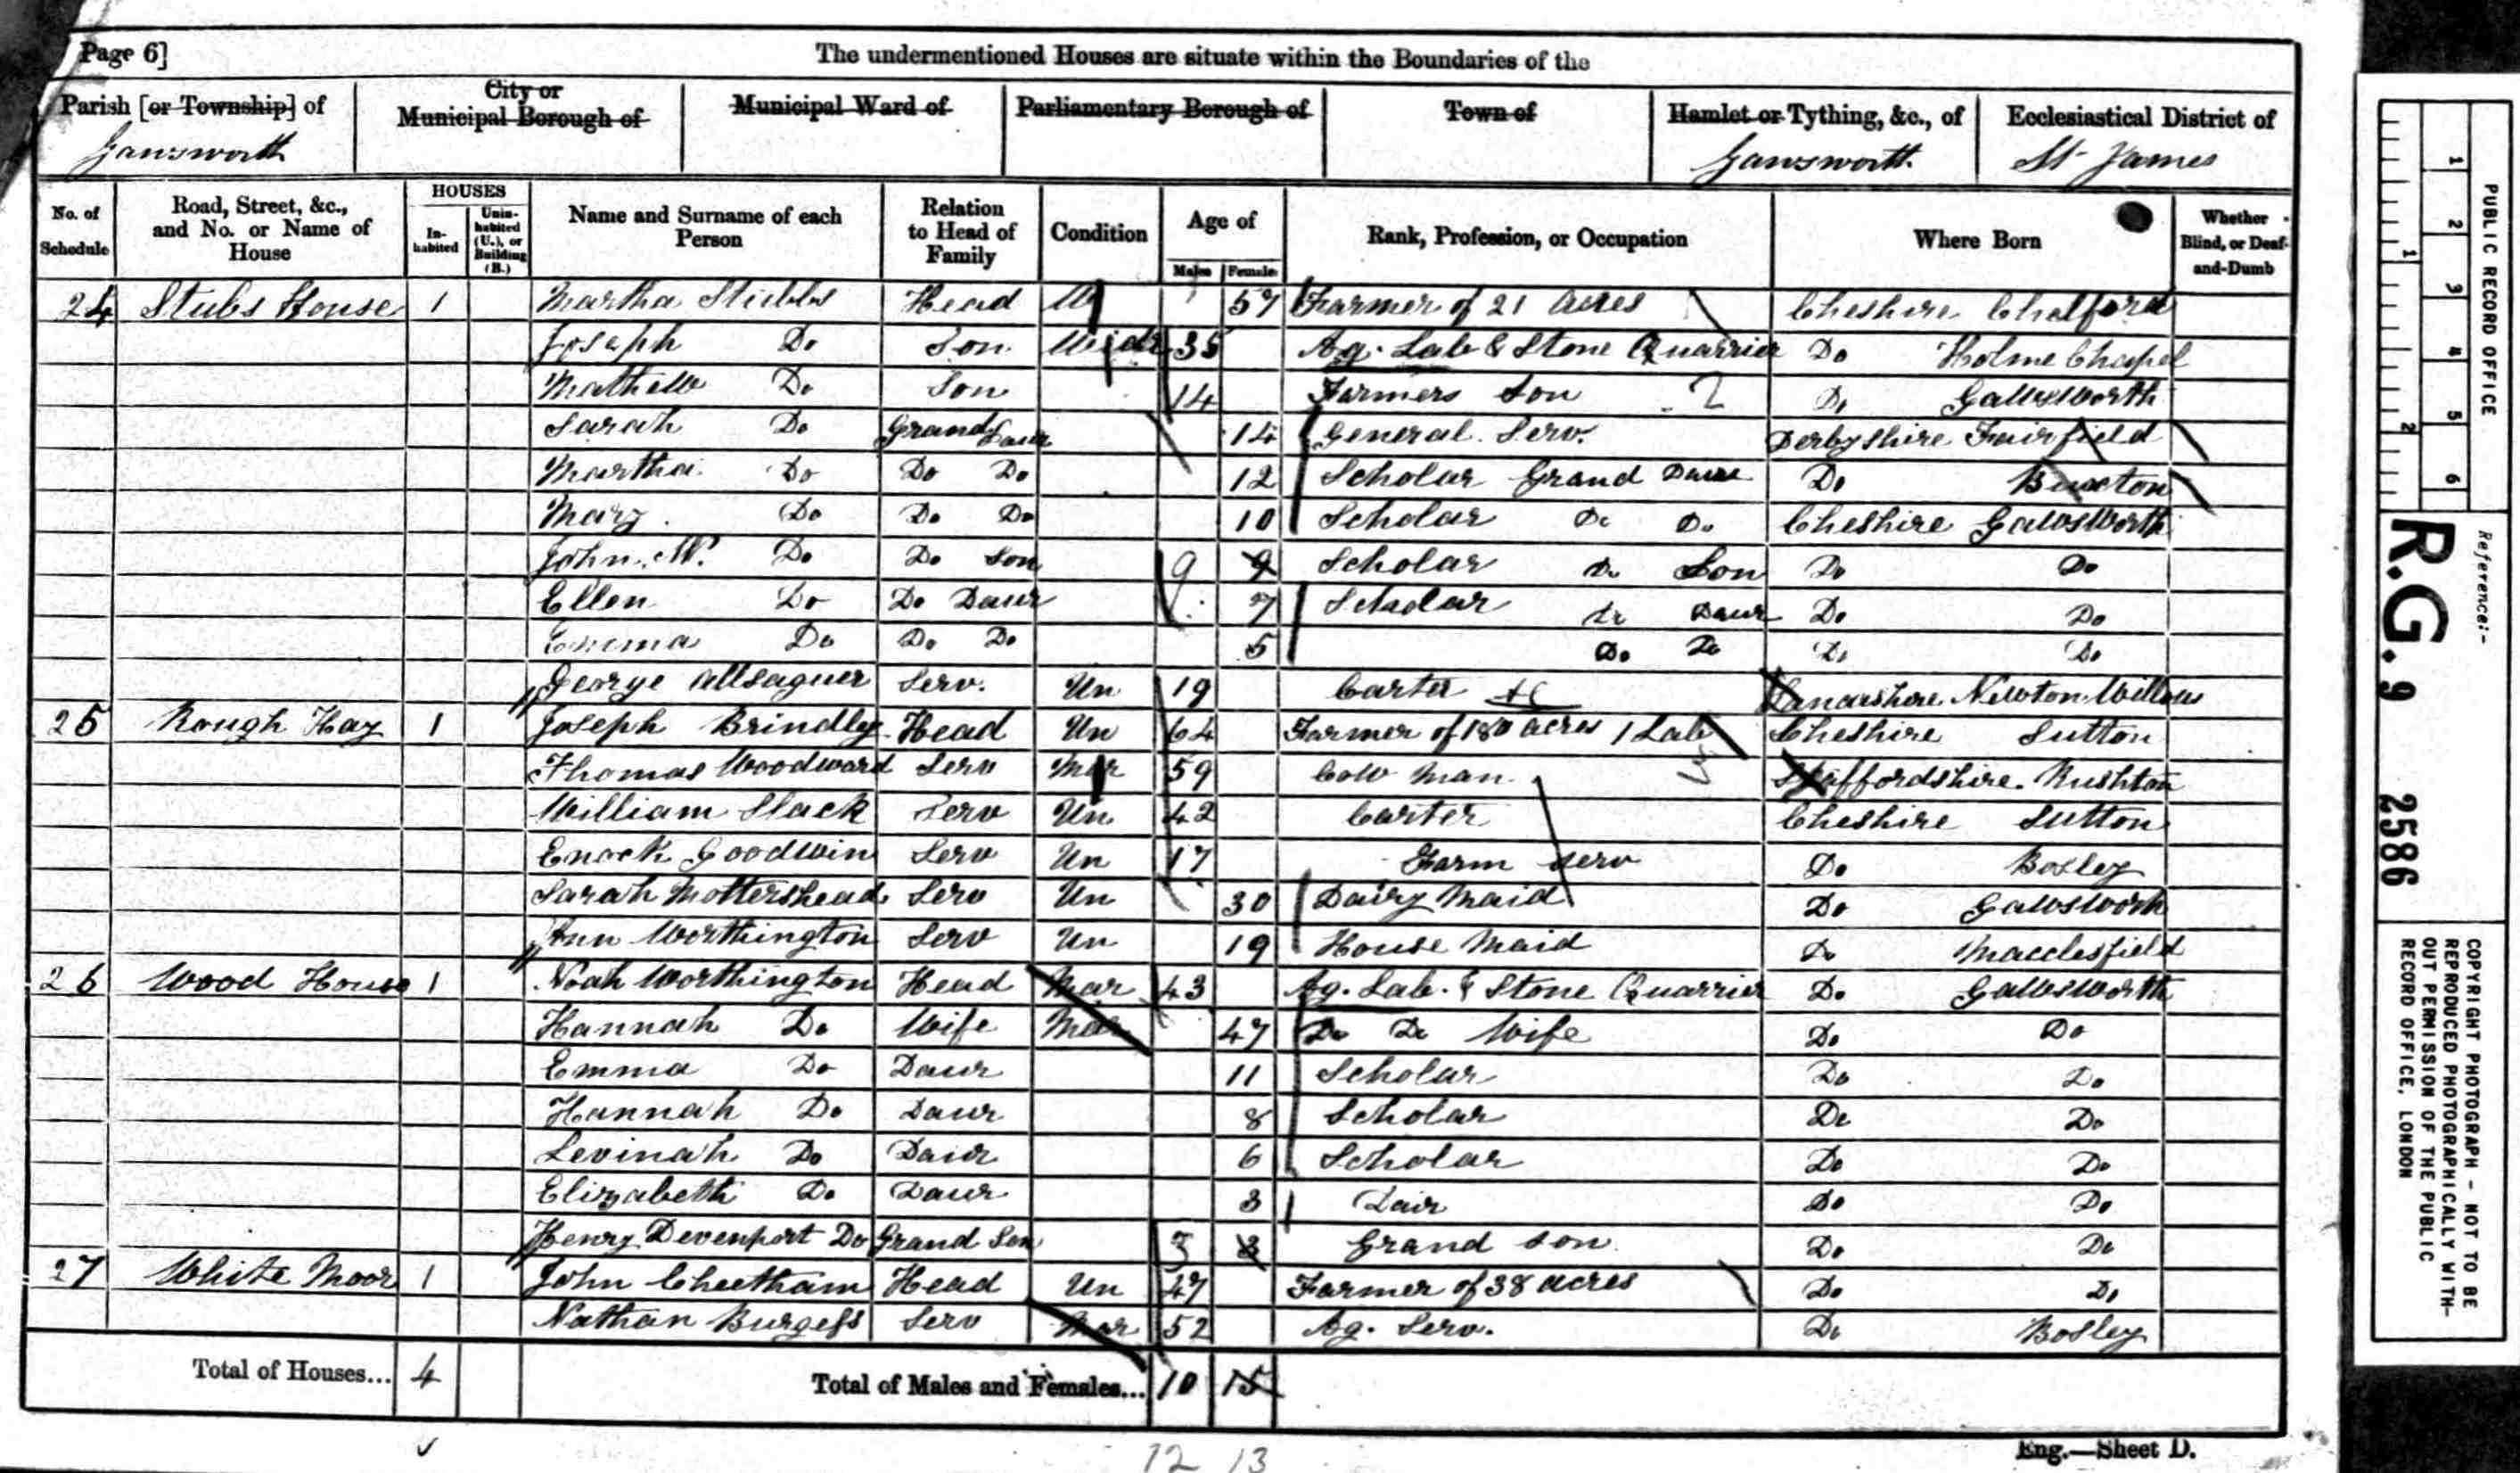 Page 6]
The undermentioned Houses are situate within the Boundaries of the
Parish [or Township] of Gawsworth
City or Municipal Borough of
Municipal Ward of
Parliamentary Borough of
Town of
Hamlet or Tything, &c., of Gawsworth
Ecclesiastical District of St James
No. of Schedule
Road, Street, &c., and No. or Name of House
HOUSES
In-habited
Unin-habited (U.), or Building (B.)
Name and Surname of each Person
Relation to Head of Family
Condition
Age of
Males Females
Rank, Profession, or Occupation
Where Born
Whether Blind, or Deaf-and-Dumb
24 Stubs House 1 Martha Stubbs Head W 57 Farmer of 21 Acres Cheshire Chelford
Joseph Do Son Widr 35 Ag. Lab & Stone Quarrier Do Holme Chapel
Mathew Do Son 14 Farmers Son Do Gawsworth
Sarah Do Grand Daur 14 General Serv. Derbyshire Fairfield
Martha Do Do Do 12 Scholar Grand Daur Do Buxton
Mary Do Do Do 10 Scholar Do Do Cheshire Gawsworth
John W. Do Do Son 9 9 Scholar Do Son Do Do
Ellen Do Do Daur 7 Scholar Do Daur Do Do
Emma Do Do Do 5 Do Do Do Do
George Allsaguer Serv. Un 19 Carter Lancashire Newton Willows
25 Rough Hay 1 Joseph Brindley Head Un 64 Farmer of 180 acres 1 Lab Cheshire Sutton
Thomas Woodward Serv Mar 59 Cow Man Staffordshire. Rushton
William Slack Serv Un 42 Carter Cheshire Sutton
Enock Goodwin Serv Un 17 Farm Serv Do Bosley
Sarah Mottershead Serv Un 30 Dairy Maid Do Gawsworth
Ann Worthington Serv Un 19 House Maid Do Macclesfield
26 Wood House 1 Noah Worthington Head Mar 43 Ag. Lab. & Stone Quarrier Do Gawsworth
Hannah Do Wife Mar 47 Do Do Wife Do Do
Emma Do Daur 11 Scholar Do Do
Hannah Do Daur 8 Scholar Do Do
Levinah Do Daur 6 Scholar Do Do
Elizabeth Do Daur 3 Daur Do Do
Henry Devenport Do Grand Son 3 3 Grand son Do Do
27 White Moor 1 John Cheetham Head Un 47 Farmer of 38 acres Do Do
Nathan Burgess Serv Mar 52 Ag. Serv. Do Bosley
Total of Houses... 4
Total of Males and Females... 10 15
12 13
Eng.—Sheet D.
PUBLIC RECORD OFFICE
1 2 3 4 5 6
1 2
Reference:-
R.G. 9 2586
COPYRIGHT PHOTOGRAPH - NOT TO BE
REPRODUCED PHOTOGRAPHICALLY WITH-
OUT PERMISSION OF THE PUBLIC
RECORD OFFICE, LONDON